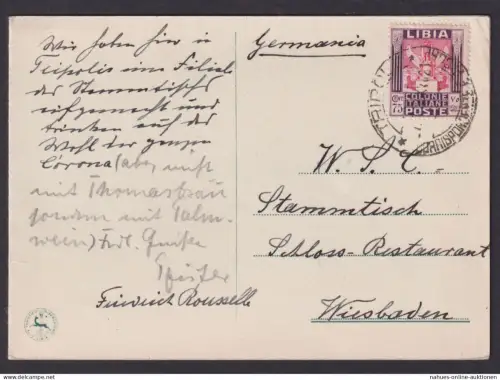 Wir haben hier in
Tripolis eine Filiale
des Stammtischs
aufgemacht und
trinken auf das
Wohl der ganzen
Corona (aber nicht
mit Thomasbräu
sondern mit Palm-
wein) Frdl. Grüße
Friedrich Rousselle
Germania
LIBIA
COLONIE
ITALIANE
75
POSTE
TRIPOLI
W. S. C.
Stammtisch
Schloss-Restaurant
Wiesbaden
www.nahues-online-auktionen